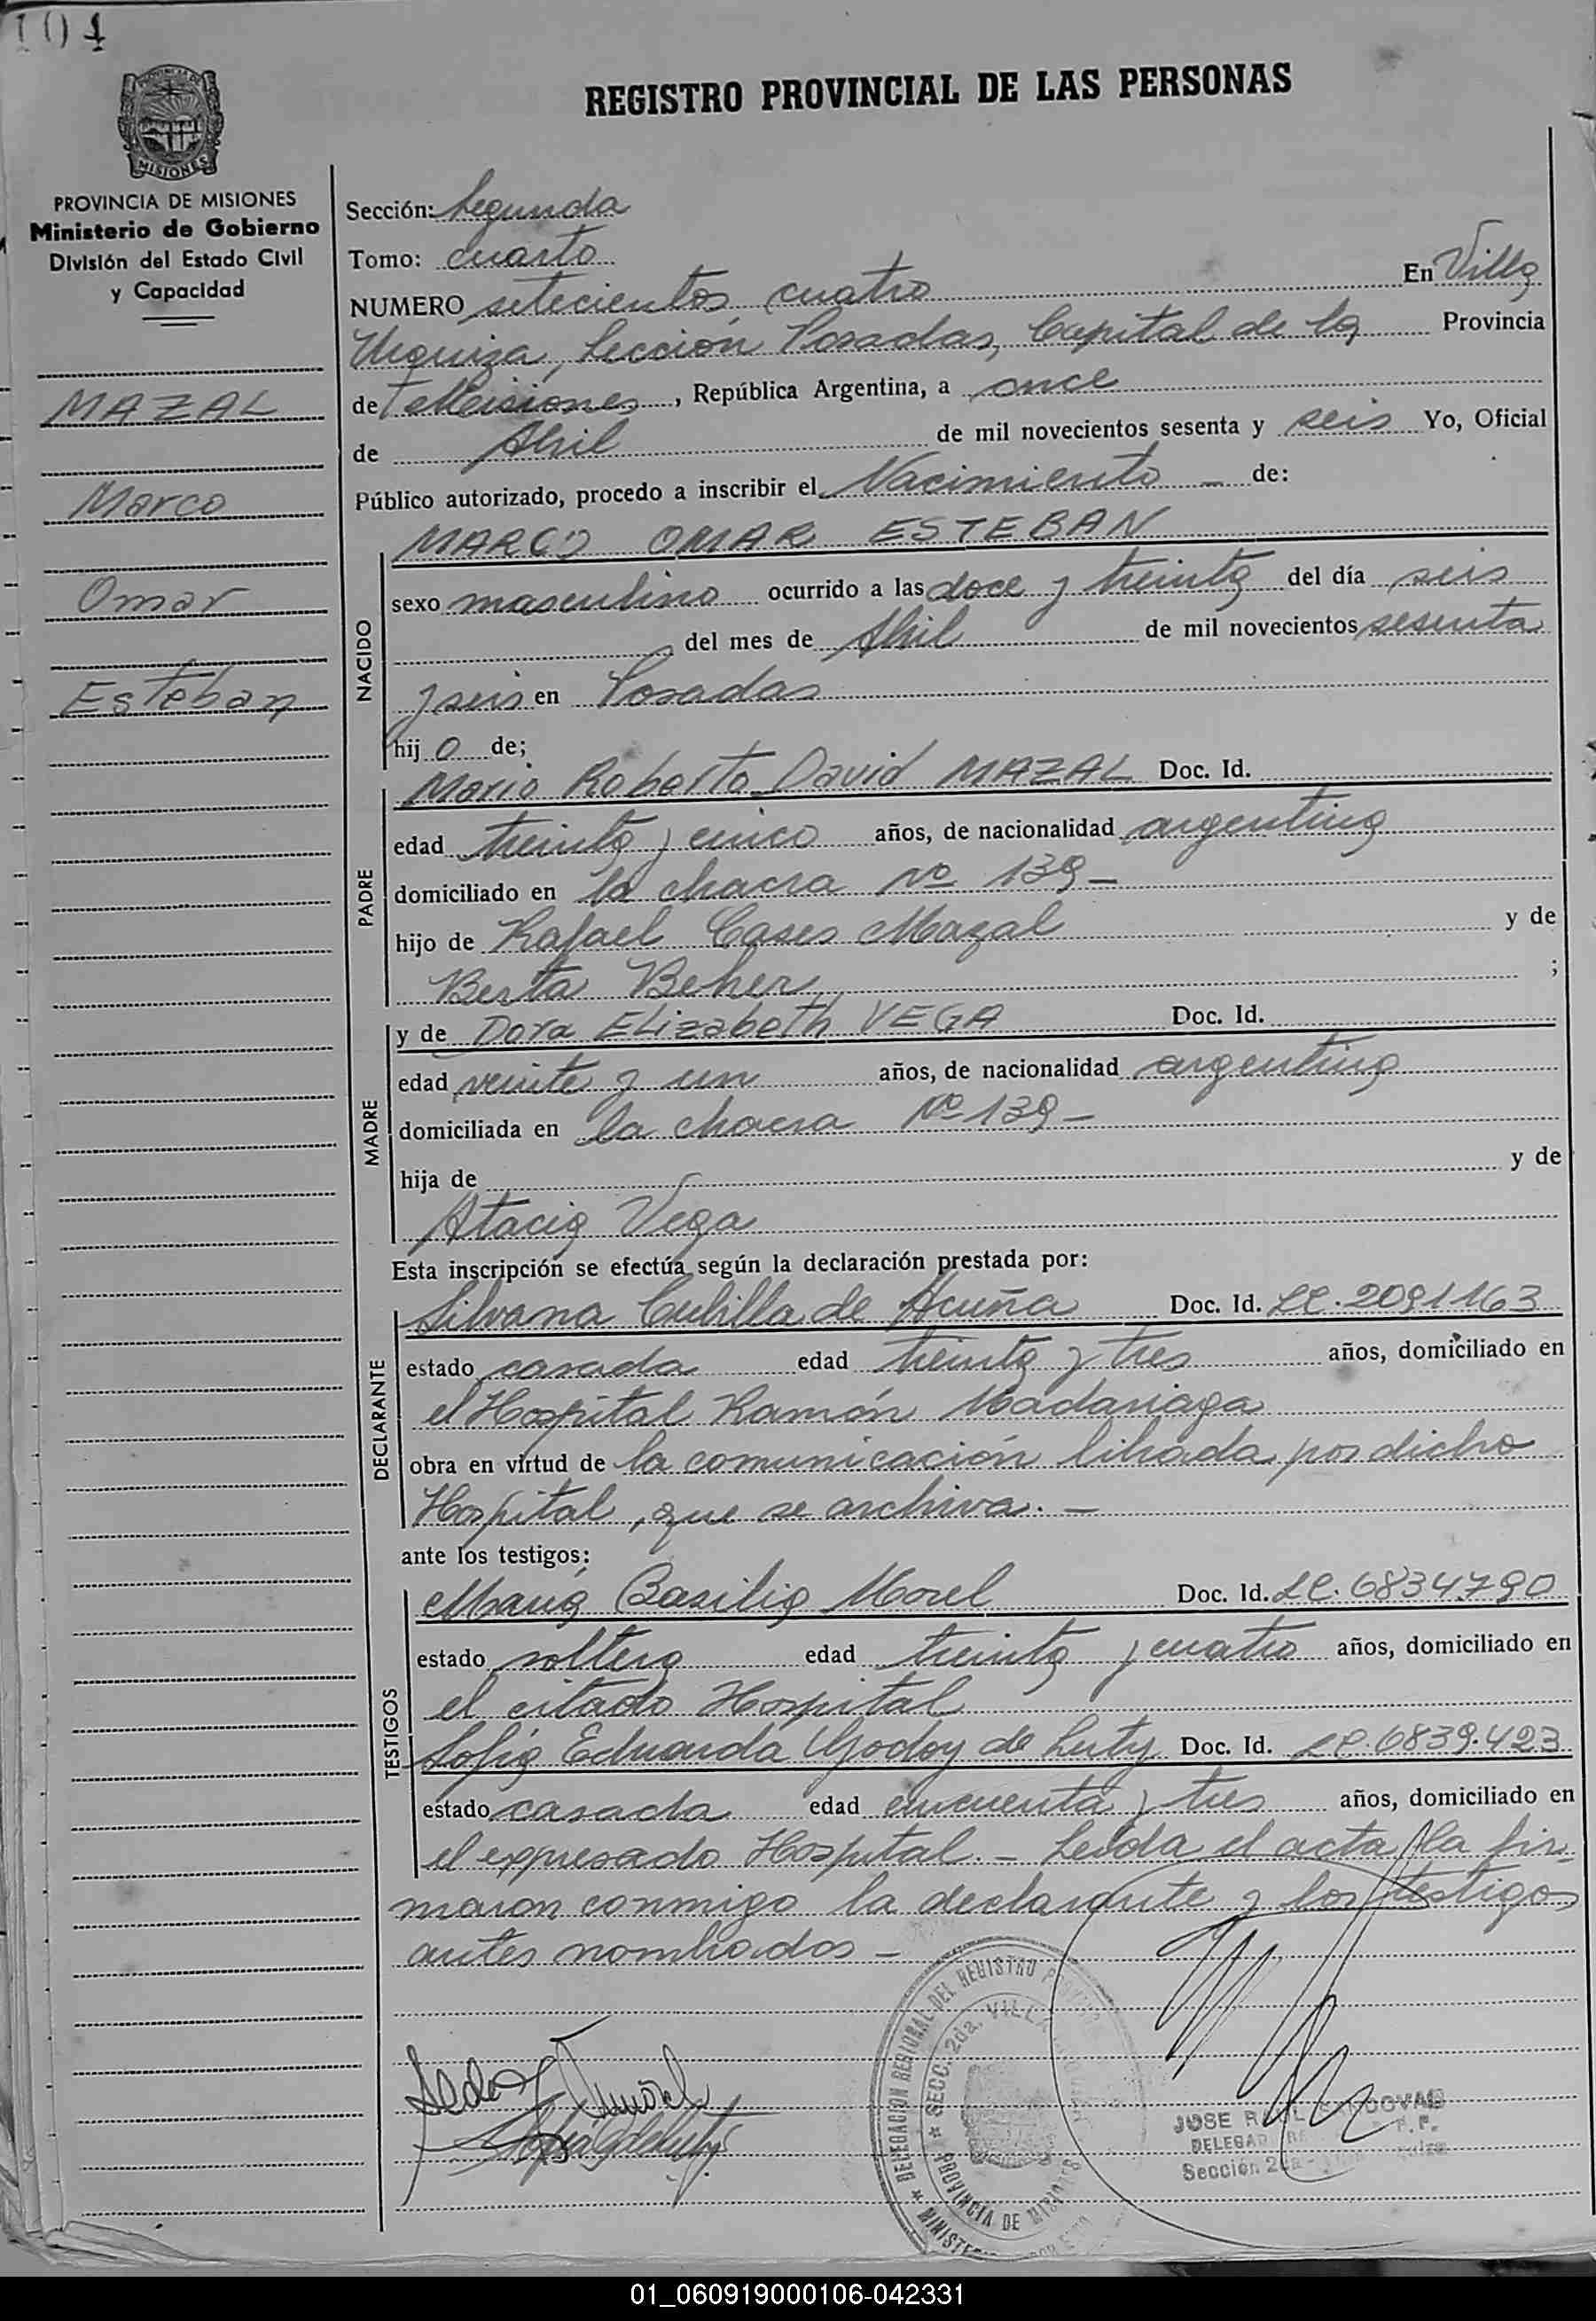 104
REGISTRO PROVINCIAL DE LAS PERSONAS
MISIONES
PROVINCIA DE MISIONES
Ministerio de Gobierno
División del Estado Civil
y Capacidad
MAZAL
Marco
Omar
Esteban
Sección: Segunda
Tomo: cuarto
NUMERO setecientos cuatro En Villa
Urquiza, Sección Posadas, Capital de la Provincia
de Misiones, República Argentina, a once
de Abril de mil novecientos sesenta y seis Yo, Oficial
Público autorizado, procedo a inscribir el Nacimiento - de:
MARCO OMAR ESTEBAN
NACIDO
sexo masculino ocurrido a las doce y treinta del día seis
del mes de Abril de mil novecientos sesenta
y seis en Posadas
hijo de;
PADRE
Mario Roberto David MAZAL Doc. Id.
edad treinta y cinco años, de nacionalidad argentina
domiciliado en la chacra Nº 139-
hijo de Rafael Cases Mazal y de
Berta Beher ;
MADRE
y de Dora ELizabeth VEGA Doc. Id.
edad veinte y un años, de nacionalidad argentina
domiciliada en la chacra Nº 139-
hija de y de
Atacia Vega
Esta inscripción se efectúa según la declaración prestada por:
DECLARANTE
Silvana Cubilla de Acuña Doc. Id. LC. 2091163
estado casada edad treinta y tres años, domiciliado en
el Hospital Ramón Madariaga
obra en virtud de la comunicación librada por dicho
Hospital, que se archiva.-
ante los testigos:
TESTIGOS
María Basilia Morel Doc. Id. LC. 6834790
estado soltera edad treinta y cuatro años, domiciliado en
el citado Hospital
Sofía Eduarda Godoy de Luty Doc. Id. LC. 6839.423
estado casada edad cincuenta y tres años, domiciliado en
el expresado Hospital.- Leída el acta, la fir-
maron conmigo la declarante y los testigos
antes nombrados -
DELEGACION REGIONAL DEL REGISTRO
SECC. 2da. VILLA
PROVINCIA DE MISIONES
JOSE RAUL SANDOVAL
Sección 2da
01_060919000106-042331